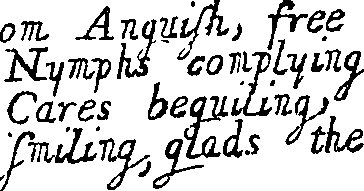 om Anguiſh, free
Nymphs complying
Cares beguiling,
ſmiling, glads the